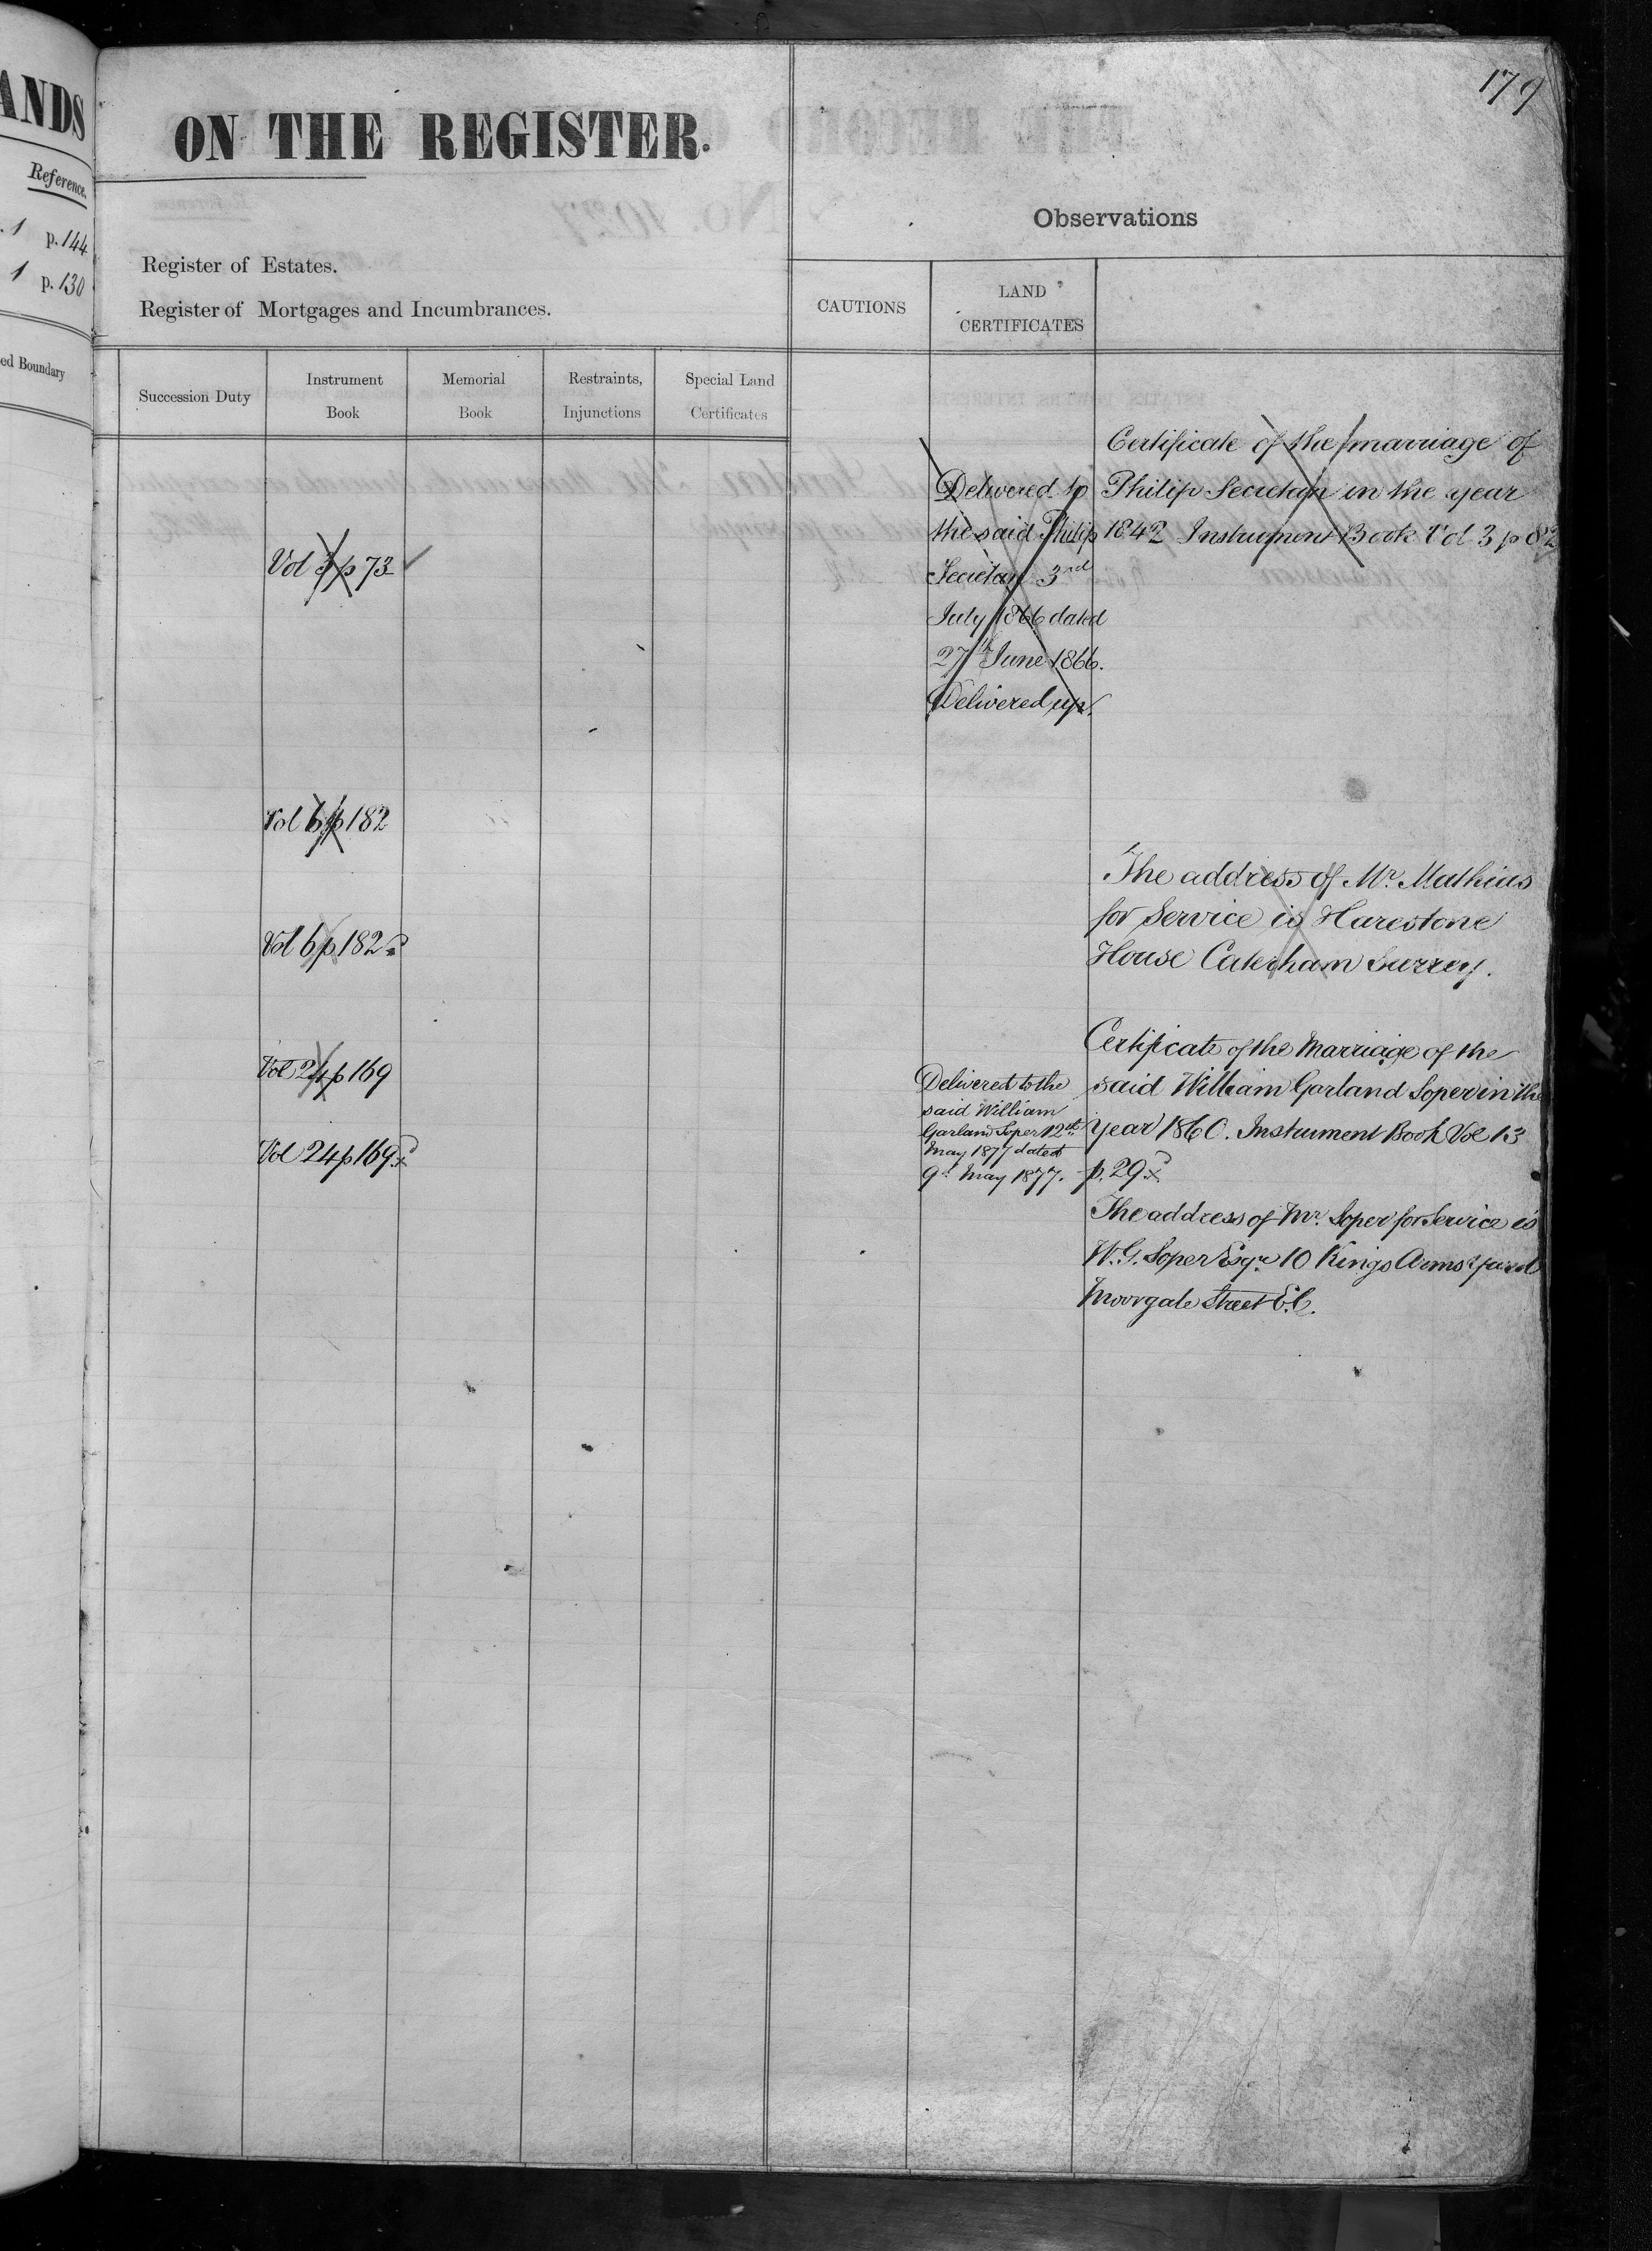 ANDS
Reference.
. 1 p. 144
1 p. 130
ed Boundary
179
ON THE REGISTER.
Observations
Register of Estates.
Register of Mortgages and Incumbrances.
CAUTIONS
LAND
CERTIFICATES
Succession Duty
Instrument
Book
Memorial
Book
Restraints,
Injunctions
Special Land
Certificates
Vol 3 p 73
Delivered to
the said Philip
Secretan 3rd
July 1866 dated
27th June 1866.
Delivered up.
Certificate of the marriage of
Philip Secretan in the year
1842 Instrument Book Vol 3 p 82
Vol 6 p 182
Vol 6 p 182
The address of Mr. Mathias
for Service is Harestone
House Caterham Surrey.
Vol 24 p 169
Vol 24 p 169
Delivered to the
said William
Garland Soper 12th
May 1877 dated
9th May 1877.
Certificate of the Marriage of the
said William Garland Soper in the
year 1860. Instrument Book Vol 13
p. 29
The address of Mr. Soper for Service is
W. G. Soper Esqre 10 Kings Arms Yard
Moorgate Street E.C.